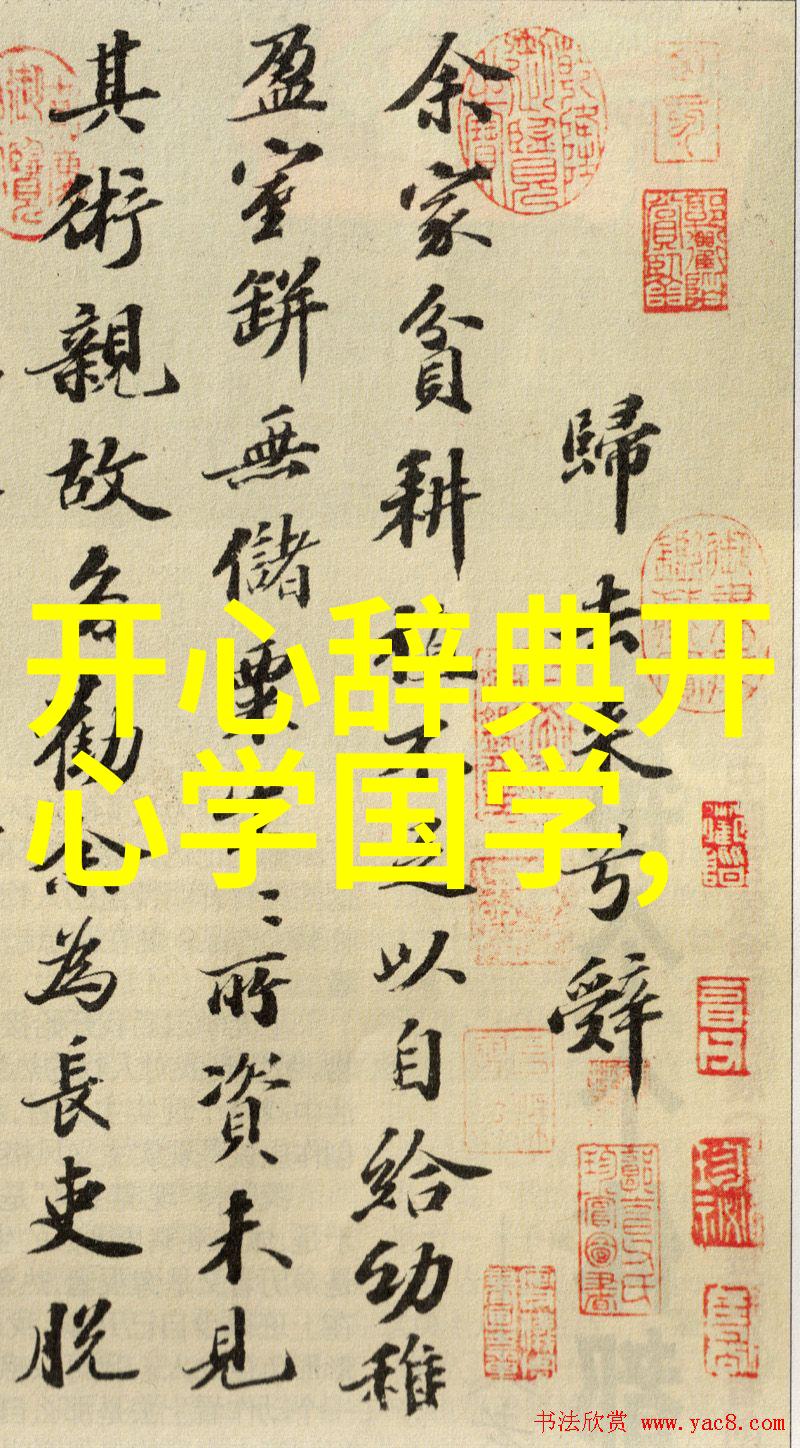 歸去来兮辭
余家貧耕植不足以自給幼稚
盈室缾無儲粟生〻所資未見
其術親故多勸余為長吏脱
开心辞典开
心学国学,
书法欣赏 www.yac8.com